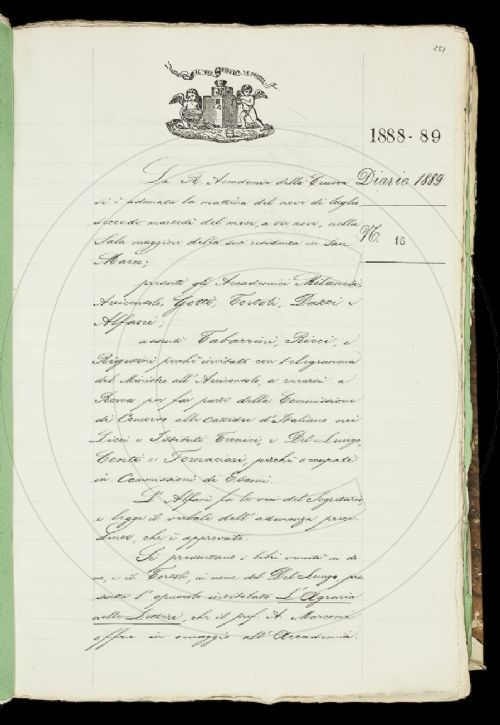 251
1888-89
Diario 1889
N. 16
La R. Accademia della Crusca
si è adunata la mattina del nove di luglio,
secondo martedì del mese, a ore nove, nella
Sala maggiore della sua residenza in San
Marco;
presenti gli Accademici Milanesi,
Arciconsolo, Gotti, Tortoli, Dazzi e
Alfani;
assenti Tabarrini, Ricci, e
Rigutini perchè invitati con telegramma
del Ministro all'Arciconsolo, a recarsi a
Roma per far parte della Commissione
di Concorso alle cattedre d'Italiano nei
Licei e Istituti Tecnici, e Del Lungo
Conti e Fornaciari, perchè occupati
in Commissioni di Esami.
L'Alfani fa le veci del Segretario,
e legge il verbale dell'adunanza prece
dente, che è approvato.
Si presentano i libri venuti in do
no, e il Tortoli, in nome del Del Lungo, pre
senta l'opuscolo intitolato L'Agraria
nelle Lettere, che il prof. A. Marconi
offre in omaggio all'Accademia.